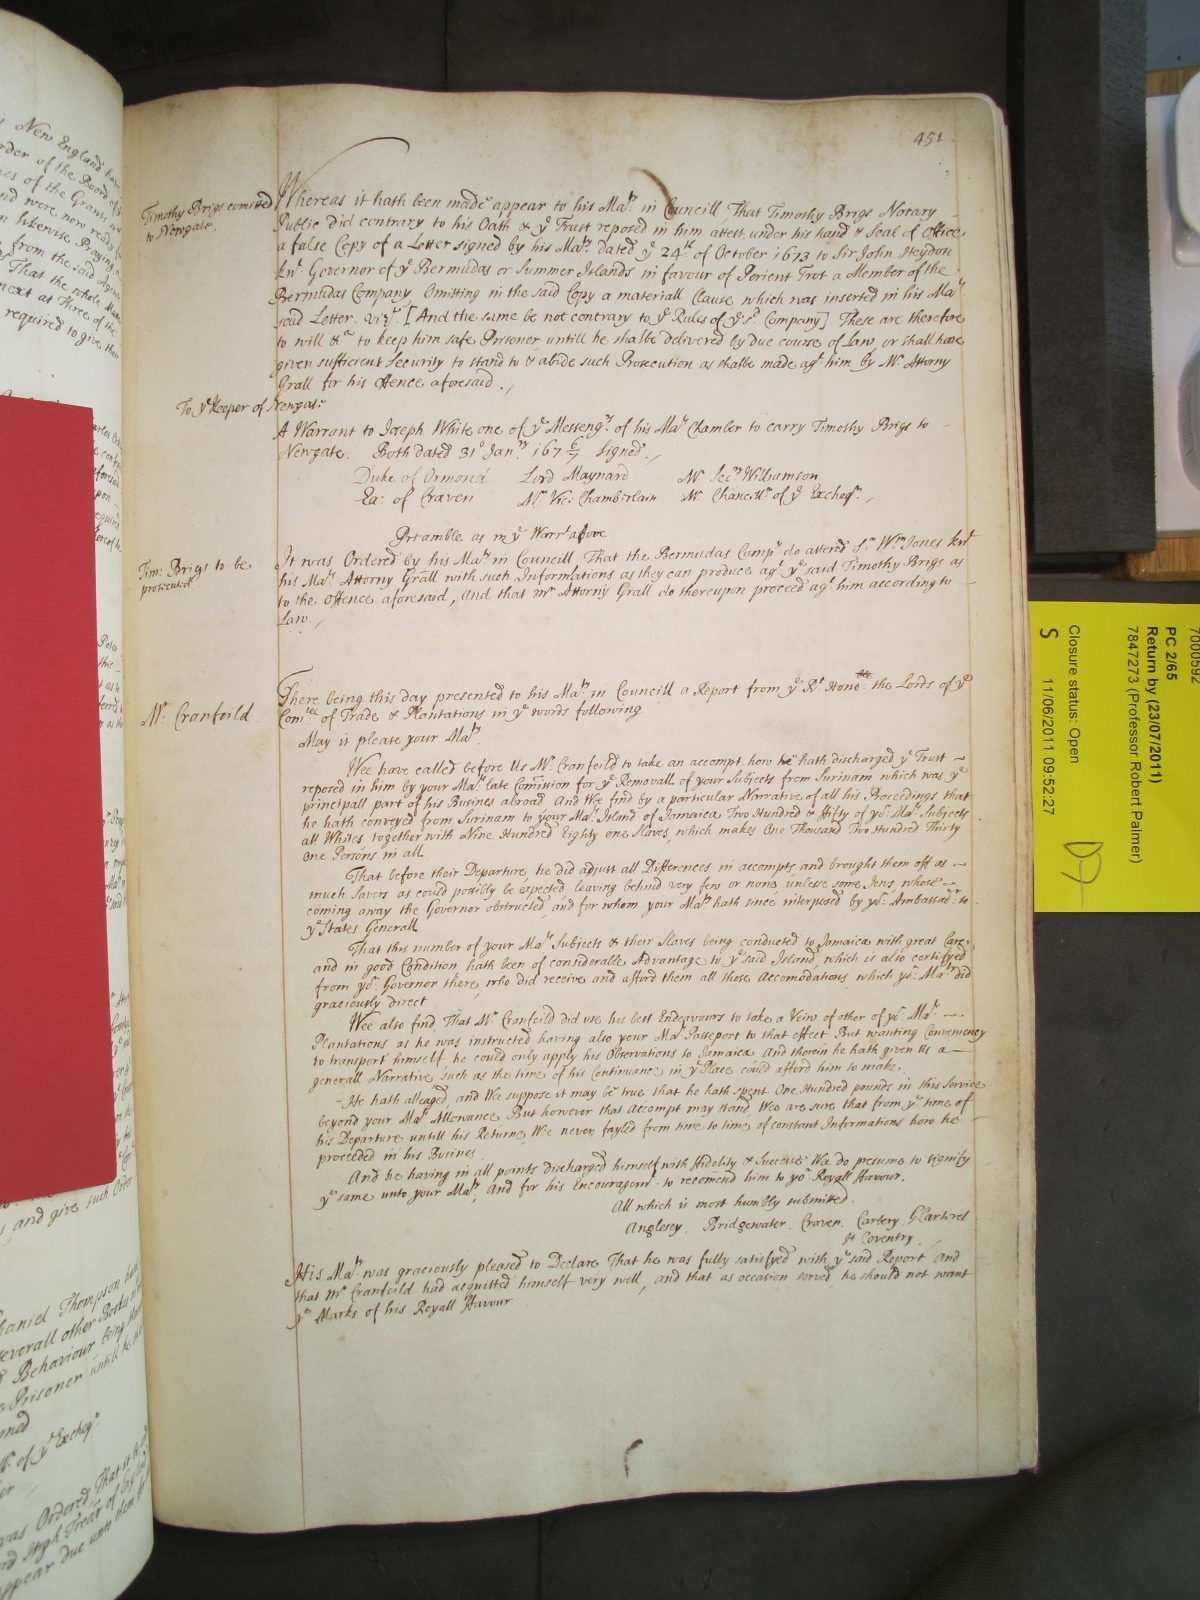 451
Timothy Brigs comitted
to Newgate.
Whereas it hath been made appear to his Ma.ty in Councill That Timothy Brigs Notary
Publie did contrary to his Oath & y.e Trust reposed in him attest under his hand & Seal of Office
a false Copy of a Letter signed by his Ma.ty dated y.e 24.th of October 1673 to Sir John Heydon
Kn.t Governor of y.e Bermudas or Summer Islands in favour of Perient Trot a Member of the
Bermudas Company Omitting in the said Copy a materiall Clause which was inserted in his Ma.ts
said Letter. viz.t [And the same be not contrary to y.e Rules of y.e s.d Company] These are therefore
to will &.a to keep him safe Prisoner untill he shalbe delivered by due course of Law, or shall have
given sufficient Security to stand to & abide such Prosecution as shalbe made ag.t him by M.r Attorny
Grall for his Offence aforesaid .,
To y.e Keeper of Newgate
A Warrant to Joseph White one of y.e Messeng.rs of his Ma.ts Chamber to carry Timothy Brigs to
Newgate. Both dated 31.o Jan.ry 167 6/7 Signed.,
Duke of Ormond Lord Maynard M.r Sec.ry Williamson
Ea: of Craven M.r Vice Chamberlain M.r Chancell.r of y.e Excheq.r.,
Preamble as in y.e Warr.t above
Tim: Brigs to be
prosecuted
It was Ordered by his Ma.ty in Councill That the Bermudas Comp.y do attend S.r W.m Jones Kn.t
his Ma.ts Attorny Grall with such Informations as they can produce ag.t y.e said Timothy Brigs as
to the Offence aforesaid, and that m.r Attorny Grall do thereupon proceed ag.t him according to
Law.,
M.r Cranfeild
There being this day presented to his Ma.ty in Councill a Report from y.e R.t Hono.ble the Lords of y.e
Com.tee of Trade & Plantations in y.e words following
May it please your Ma.ty
Wee have called before Us M.r Cranfeild to take an accompt how he hath discharged y.e Trust
reposed in him by your Ma.ts late Comission for y.e Removall of your Subjects from Surinam which was y.e
principall part of his Busines abroad And We find by a particular Narrative of all his Proceedings that
he hath conveyed from Surinam to your Ma.ts Island of Jamaica Two Hundred & Fifty of yo.r Ma.ts Subjects
all Whites, together with Nine Hundred Eighty one Slaves, which makes One Thousand Two Hundred Thirty
one Persons in all.
That before their Departure, he did adjust all Differences in accompts, and brought them off as
much Savers as could possibly be expected, leaving behind very few or none, unlesse some Jews, whose
coming away the Governor obstructed, and for whom your Ma.ty hath since interposed by yo.r Ambassad.r to
y.e States Generall
That this number of your Ma.ts Subjects & their Slaves being conducted to Jamaica with great Care
and in good Condition, hath been of considerable Advantage to y.e said Island, which is also certifyed
from yo.r Governor there, who did receive and afford them all those Accomodations, which yo.r Ma.ty did
graciously direct
Wee also find That M.r Cranfeild did use his best Endeavours to take a Veiw of other of yo.r Ma.ts
Plantations as he was instructed having also your Ma.ts Passeport to that effect But wanting Conveniency
to transport himself, he could only apply his Observations to Jamaica And therein he hath given Us a
generall Narrative, such as the time of his Continuance in y.e Place could afford him to make.
He hath alleaged, and We suppose it may be true that he hath spent One Hundred pounds in this Service
beyond your Ma.ts Allowance. But however that accompt may stand, Wee are sure that from y.e time of
his Departure untill his Returne, Wee never fayled from time to time of constant Informations how he
proceeded in his Busines.
And he having in all points discharged himself with Fidelity & Successe We do presume to signify
y.e same unto your Ma.ty, And for his Encouragem.t to recomend him to yo.r Royall Favour.
All which is most humbly submitted.
Anglesey Bridgewater Craven Carbery GCarteret
H Coventry.,
His Ma.ty was graciously pleased to Declare That he was fully satisfyed with y.e said Report And
that M.r Cranfeild had acquitted himself very well, and that as occasion served he should not want
y.e Marks of his Royall Favour
7000592
PC 2/65
Return by (23/07/2011)
7847273 (Professor Robert Palmer)
Closure status: Open
S 11/06/2011 09:52:27